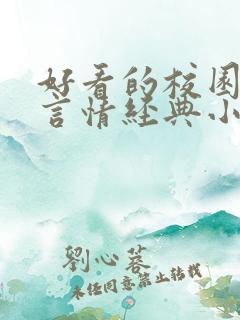 好看的校园
言情经典小
劉心蕓
未经同意禁止转载